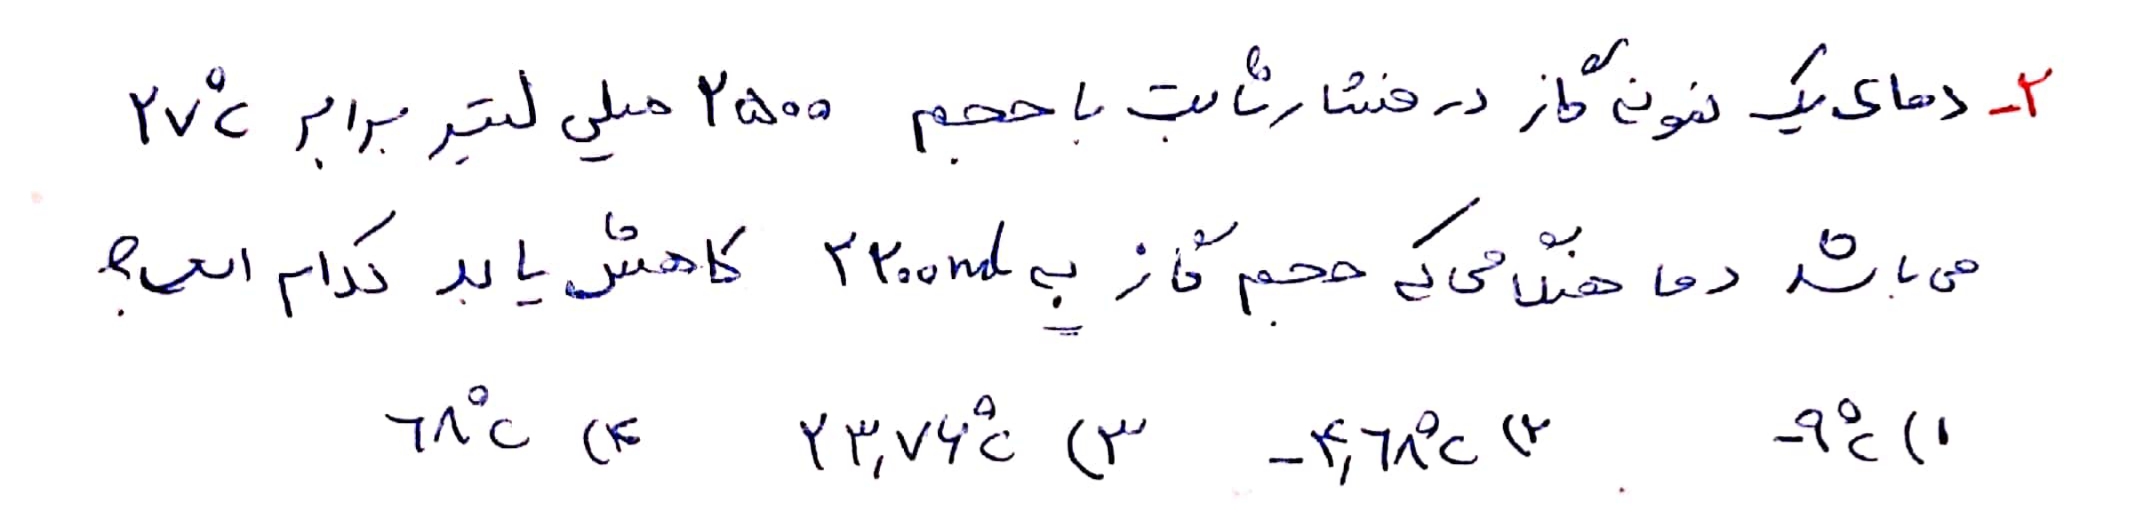 ۲- دمای یک نمونه گاز در فشار ثابت با حجم ۲۵۰۰ میلی لیتر برابر ۲۷°C
می باشد دما هنگامی که حجم گاز به ۲۲۰۰ml کاهش یابد کدام است؟
۱) -۹°C ۲) -۴,۶۸°C ۳) ۲۳,۷۶°C ۴) ۶۸°C